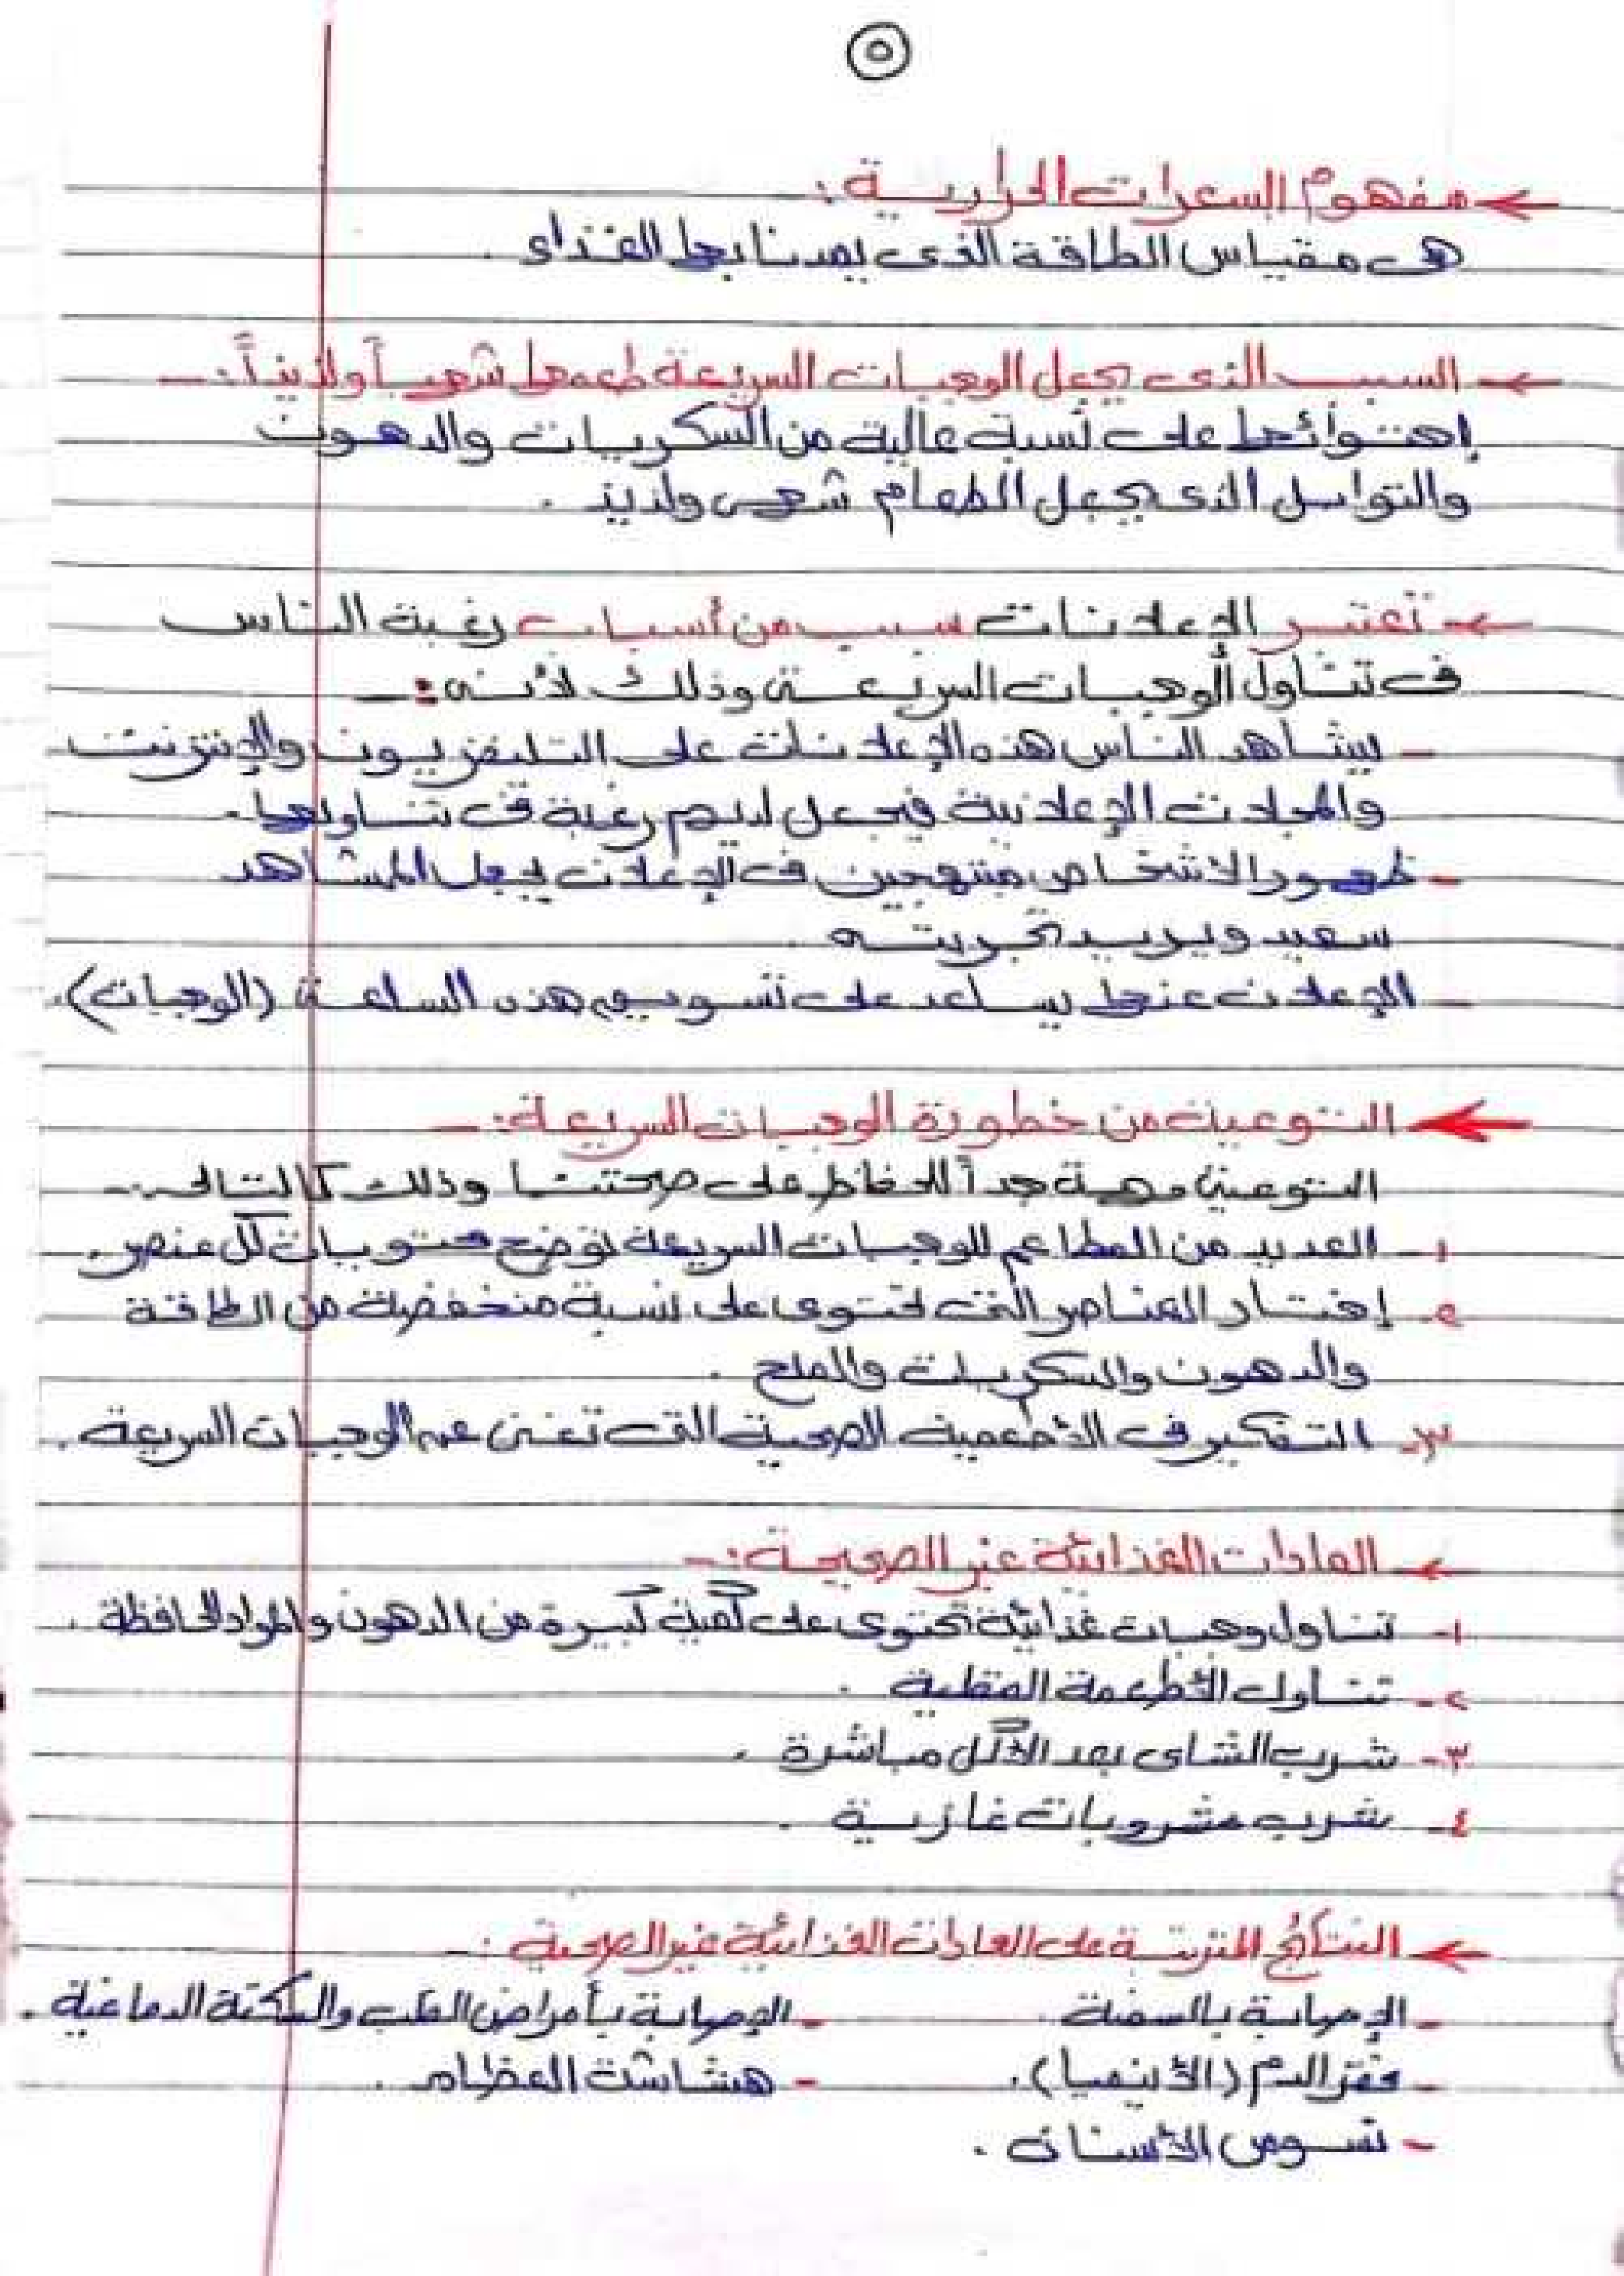 ٥
← مفهوم السعرات الحرارية :
هى مقياس الطاقة الذى يمدنا بها الغذاء .
← السبب الذى يجعل الوجبات السريعة طعمها شهياً ولذيذاً :-
إحتوائها على نسبة عالية من السكريات والدهون
والتوابل الذى يجعل الطعام شهى ولذيذ .
← تعتبر الإعلانات سبب من أسباب رغبة الناس
فى تناول الوجبات السريعة وذلك لأنه :-
- يشاهد الناس هذه الإعلانات على التليفزيون والإنترنت
والمجلات الإعلانية فيجعل لديهم رغبة فى تناولها .
- ظهور الأشخاص مبتهجين فى الإعلان يجعل المشاهد
سعيد ويريد تجربته .
- الإعلان عنها يساعد على تسويق هذه السلعة (الوجبات) .
← التوعية من خطورة الوجبات السريعة :-
التوعية مهمة جداً للحفاظ على صحتنا وذلك كالتالى :-
١- العديد من المطاعم للوجبات السريعة توضح محتويات كل عنصر .
٢- إختار العناصر التى تحتوى على نسبة منخفضة من الطاقة
والدهون والسكريات والملح .
٣- التفكير فى الأطعمة الصحية التى تغنى عن الوجبات السريعة .
← العادات الغذائية غير الصحيحة :-
١- تناول وجبات غذائية تحتوى على كمية كبيرة من الدهون والمواد الحافظة .
٢- تناول الأطعمة المقلية .
٣- شرب الشاى بعد الأكل مباشرة .
٤- شرب مشروبات غازية .
← النتائج المترتبة على العادات الغذائية غير الصحية :-
- الإصابة بالسمنة . - الإصابة بأمراض القلب والسكتة الدماغية .
- فقر الدم (الأنيميا) . - هشاشة العظام .
- تسوس الأسنان .